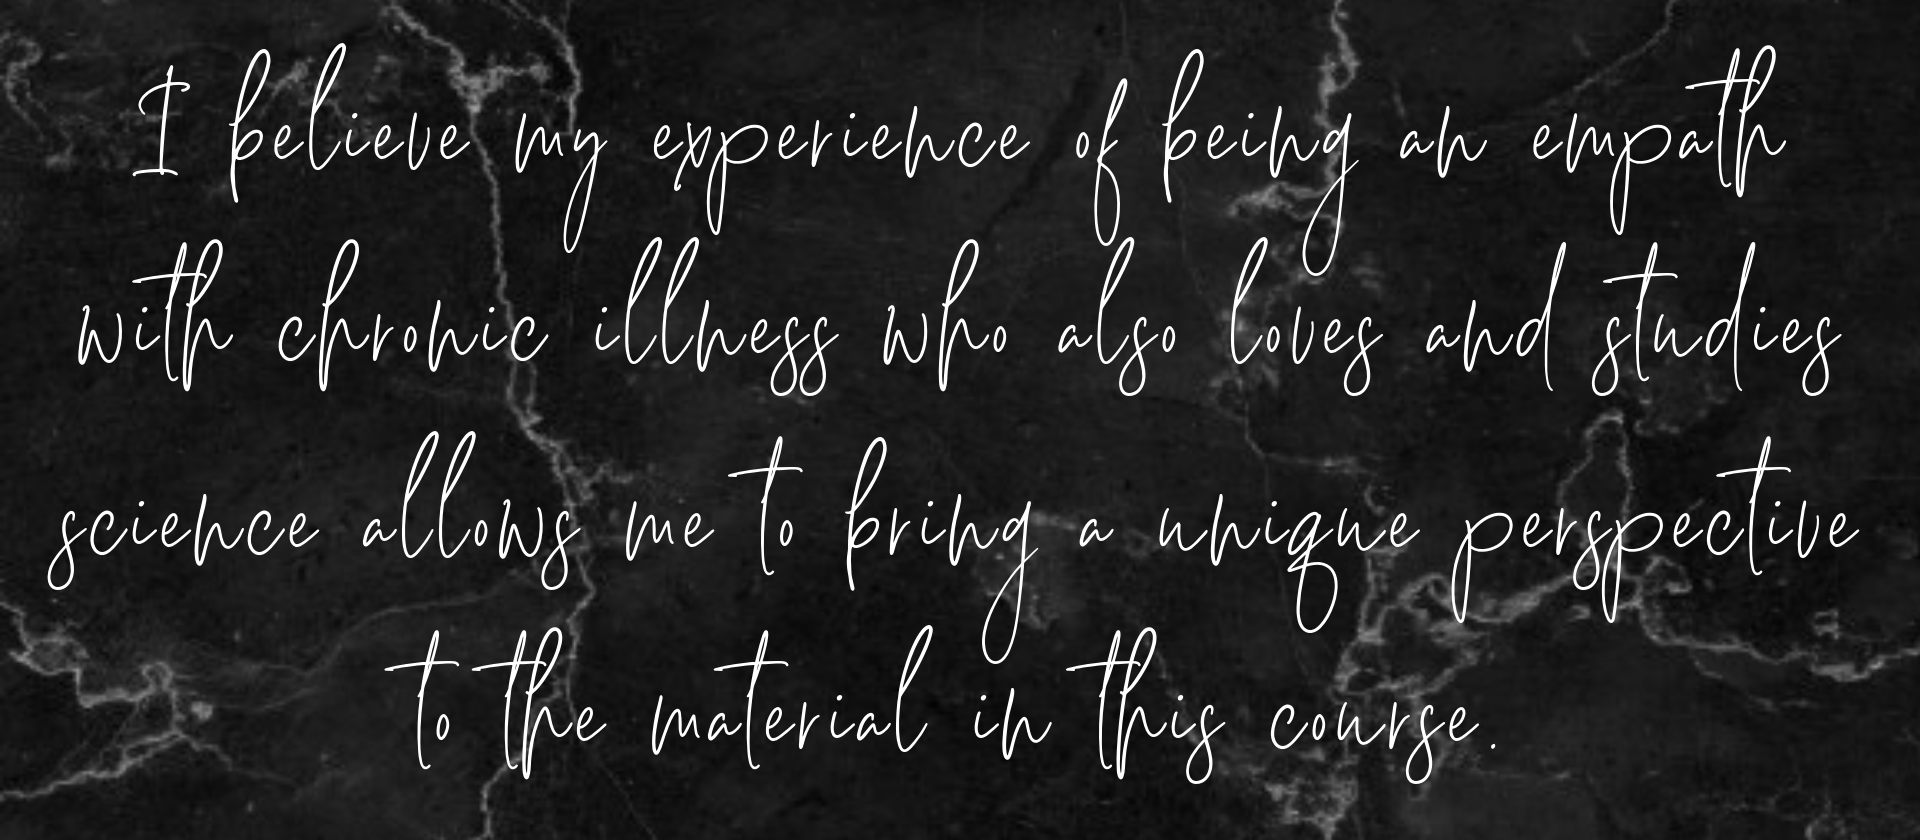 I believe my experience of being an empath
with chronic illness who also loves and studies
science allows me to bring a unique perspective
to the material in this course.